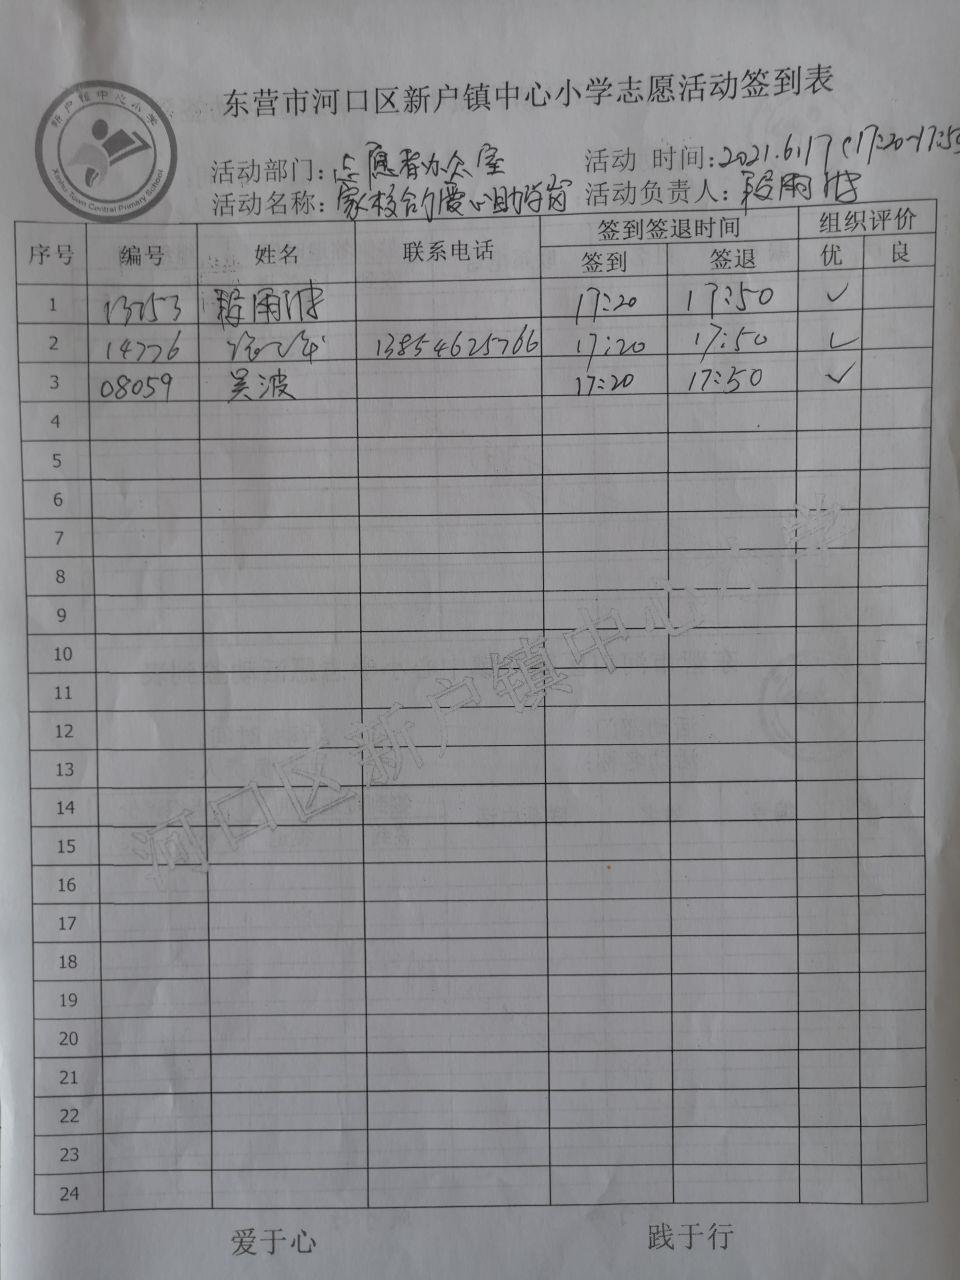 东营市河口区新户镇中心小学志愿活动签到表
新户镇中心小学
Xinhu Town Central Primary School
活动部门：志愿者办公室 活动 时间：2021.6.17（17:20-17:50
活动名称：家校合力爱心助学岗 活动负责人：段雨
序号 编号 姓名 联系电话 签到签退时间 组织评价
签到 签退 优 良
1 13753 段雨 17:20 17:50 ✓
2 14776 13854625766 17:20 17:50 ✓
3 08059 吴波 17:20 17:50 ✓
4
5
6
7
8
9
10
11
12
13
14
15
16
17
18
19
20
21
22
23
24
河口区新户镇中心小学
爱于心 践于行